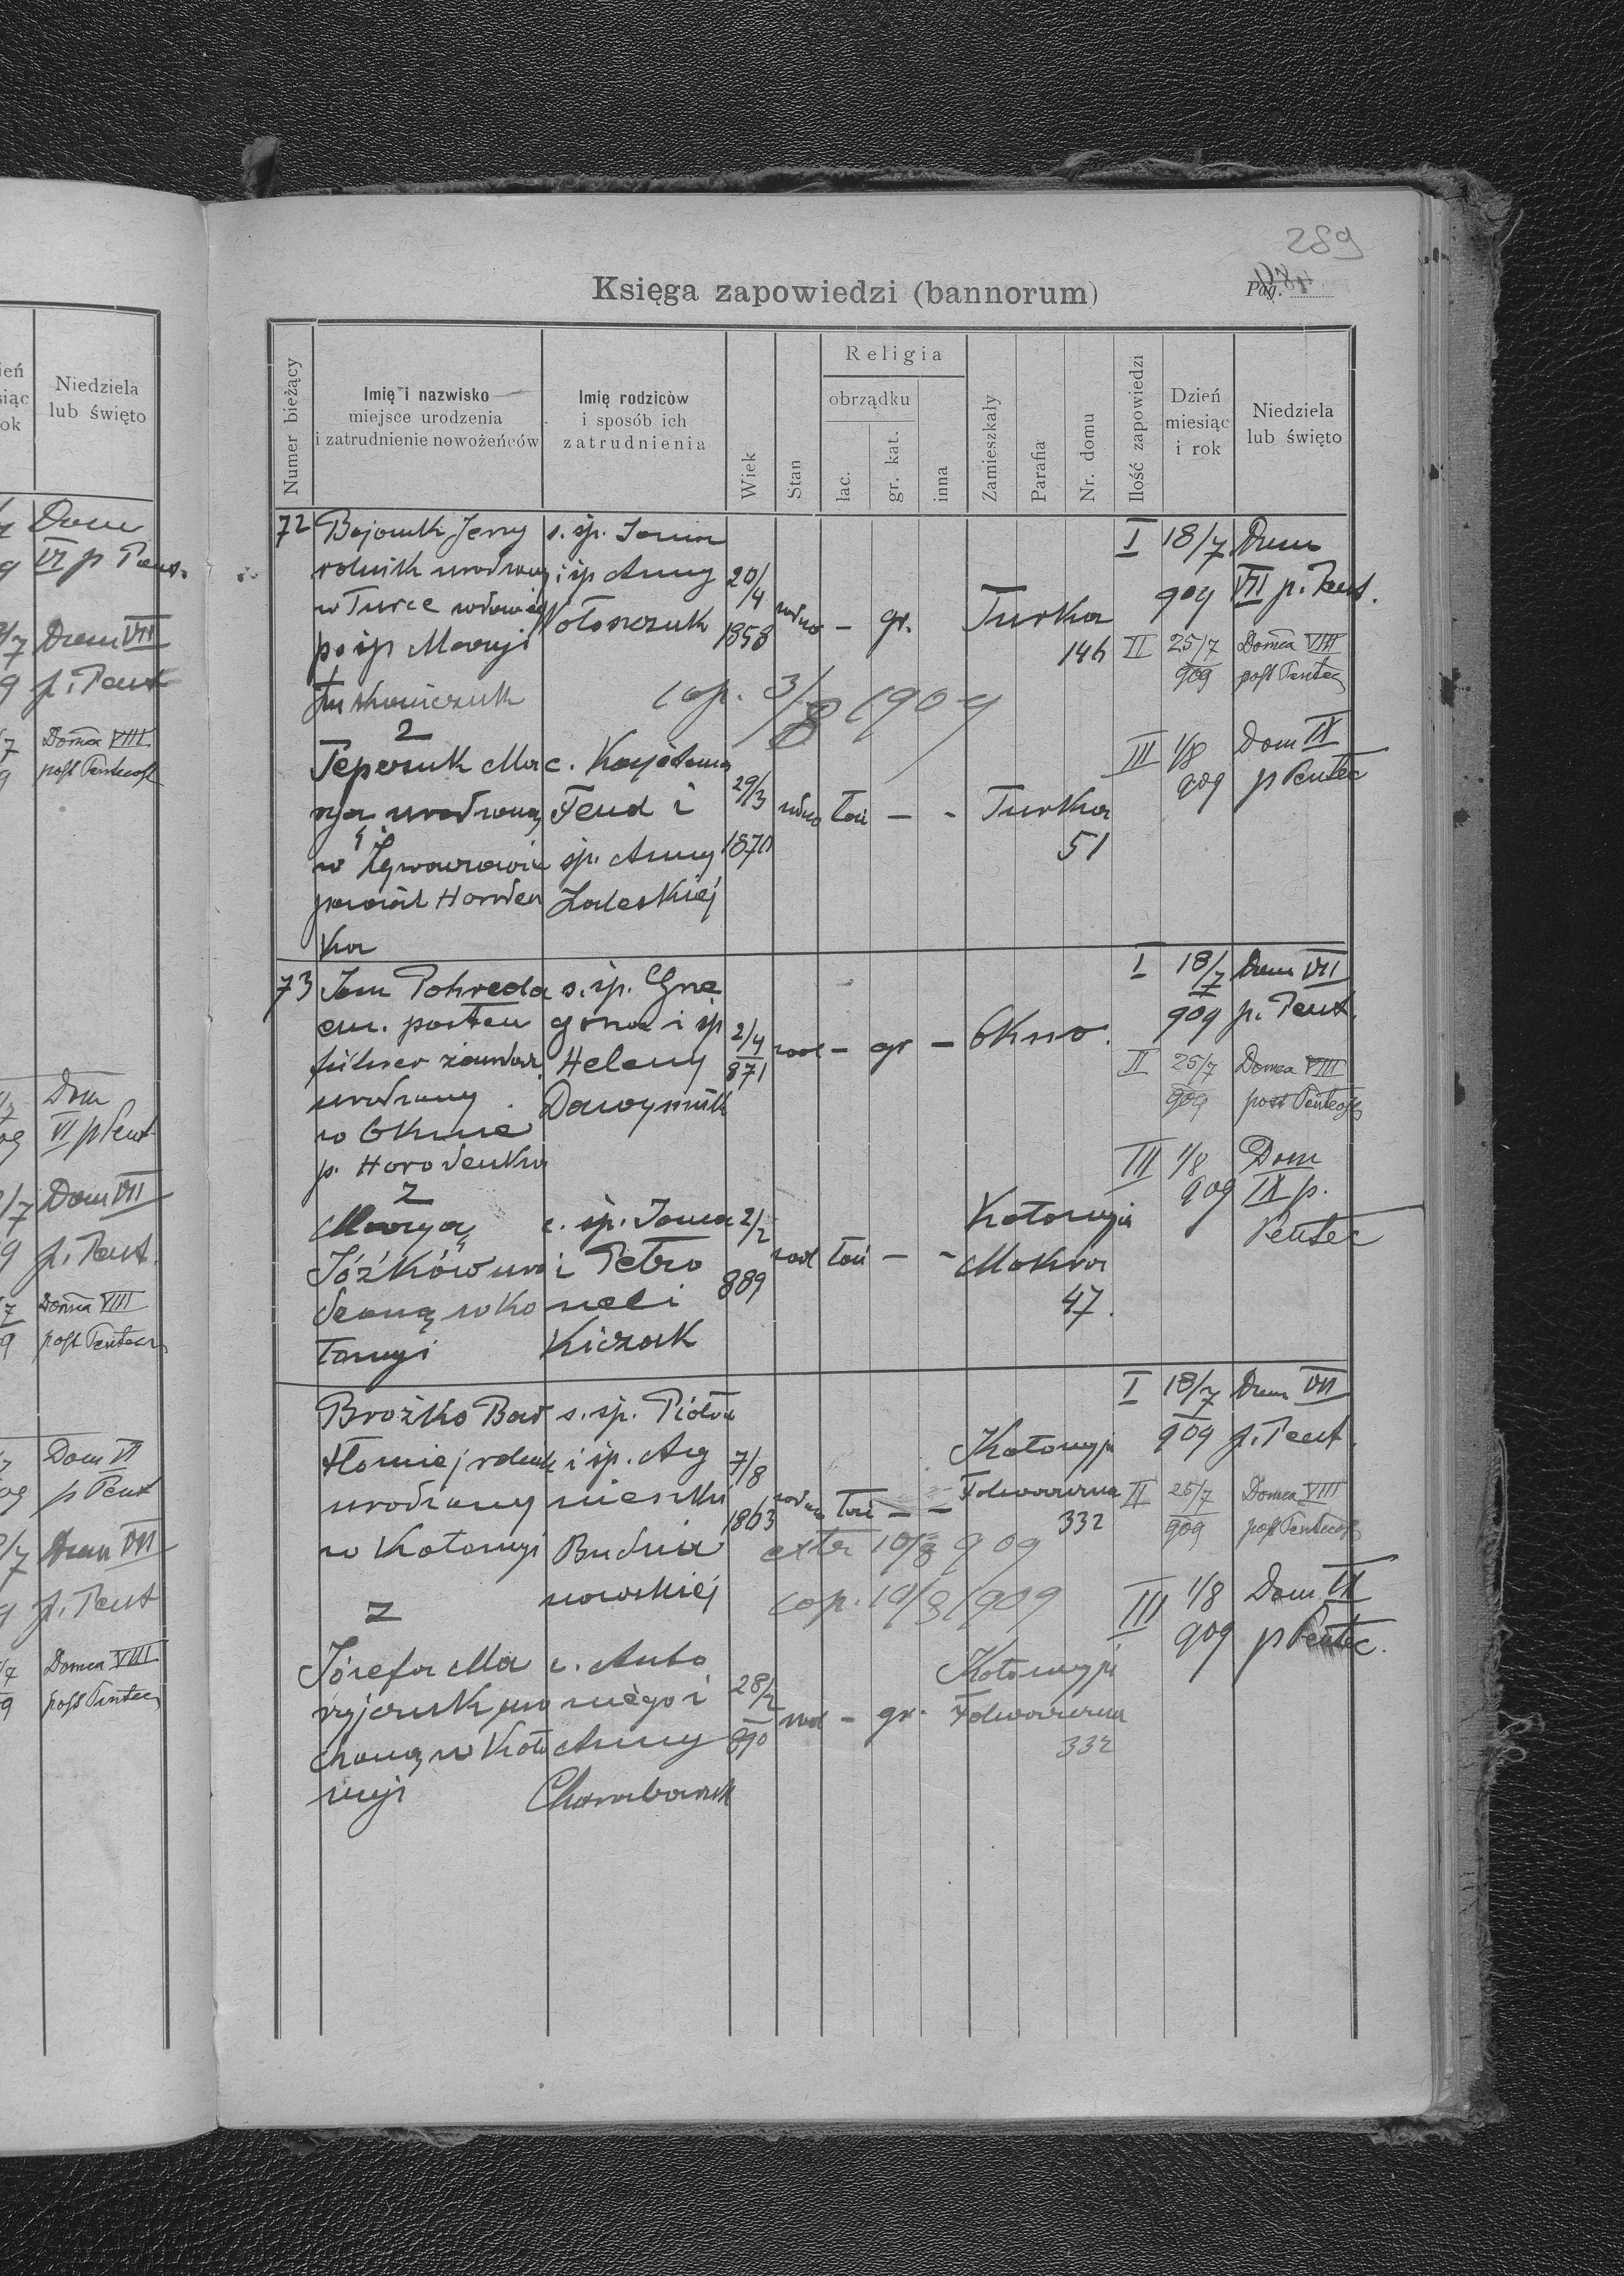 289
Księga zapowiedzi (bannorum)
Pag.
Numer bieżący
Imię i nazwisko
miejsce urodzenia
i zatrudnienie nowożeńców
Imię rodziców
i sposób ich
zatrudnienia
Wiek
Stan
Religia
obrządku
łac.
gr. kat.
inna
Zamieszkały
Parafia
Nr. domu
Ilość zapowiedzi
Dzień
miesiąc
i rok
Niedziela
lub święto
72
Jerzy
rolnik urodzony
w Turce
po śp Maryi
s. śp. Jana
i śp Anny
20/4
1858
– gr. Turka
146
I 18/7 909 Dom
VII p. Pent.
II 25/7 909 Domca VIII
post Pentec
III 1/8 909 Dom IX
p Pentec
cop. 3/8 1909
z
Ma
rya urodzoną
w
powiat Horoden
ka
c. Kajetana
Feud i
śp. Anny
Zaleskiej
29/3
1870
łać – - Turka
51
73
Jan Pohreda
em. posten
führer żandar.
urodzony
w Oknie
p. Horodenka
s. śp. Grze
gorza i śp
Heleny
2/4
871
– gr – Okno.
I 18/7 909 Dom VII
p. Pent.
II 25/7 909 Domca VIII
post Pentecos
III 1/8 909 Dom
IX p.
Pentec
z
Maryą
Józków uro
dzoną w Ko
łomyi
c. śp. Jana
i Petro
neli
Kiczak
2/2
889
łać – - Kołomyja
Mokra
47.
Brożko Bar
tłomiej rolnik
urodzony
w Kołomyi
s. śp. Piotra
i śp. Ag
nieszki
Budzia
nowskiej
7/8
1863
łać – –
Kołomyja
332
I 18/7 909 Dom VII
p. Pent.
II 25/7 909 Domca VIII
post Pentecos
III 1/8 909 Dom IX
p Pentec.
extr 10/8 909
cop. 10/8 1909
z
Józefa Ma
ryjczuk uro
dzoną w Koło
myi
c. Anto
niego i
Anny
28/2
890
– gr.
Kołomyja
332
ień
siąc
ok
Niedziela
lub święto
Dom
VI p Pent.
Dom VII
p. Pent
Domca VIII
post Pentecost
Dom
VI p Pent
Dom VII
p. Pent.
Domca VIII
post Pentecos
Dom VI
p Pent
Dom VII
p. Pent
Domca VIII
post Pentec